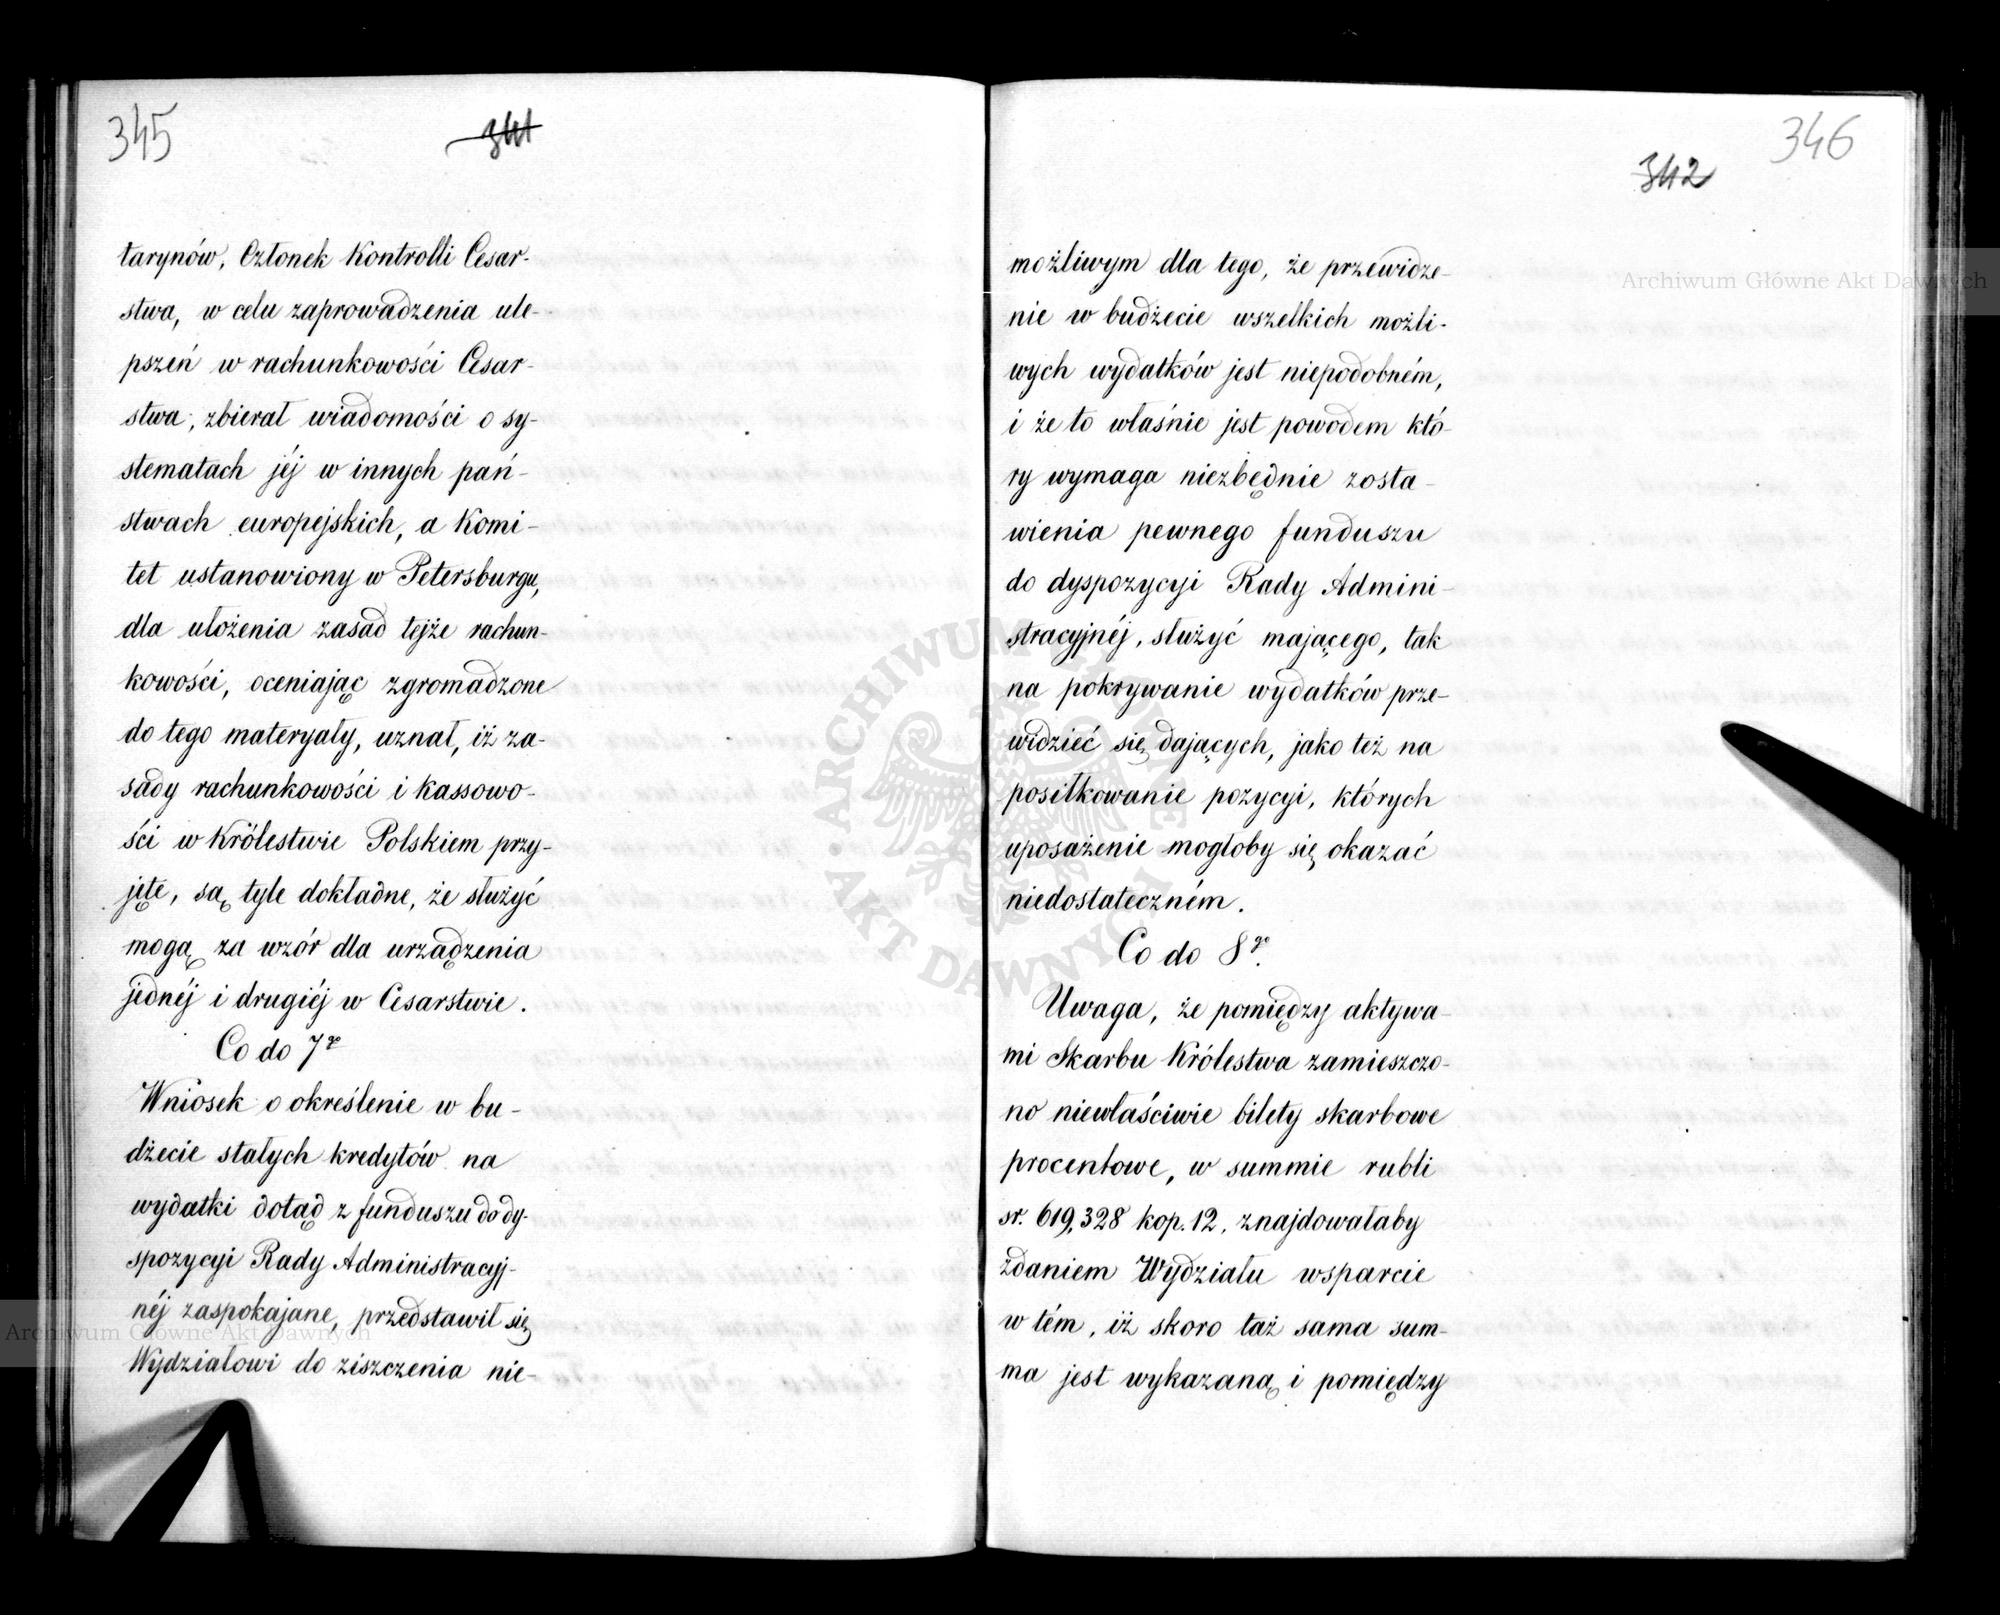 345
341
tarynów, Członek Kontrolli Cesar-
stwa, w celu zaprowadzenia ule-
pszeń w rachunkowości Cesar-
stwa, zbierał wiadomości o sy-
stematach jéj w innych pań-
stwach europejskich, a Komi-
tet ustanowiony w Petersburgu,
dla ułożenia zasad tejże rachun-
kowości, oceniając zgromadzone
do tego materyały, uznał, iż za-
sady rachunkowości i kassowo-
ści w Królestwie Polskiem przy-
jęte, są tyle dokładne, że służyć
mogą za wzór dla urządzenia
jednéj i drugiéj w Cesarstwie.
Co do 7º
Wniosek o określenie w bu-
dżecie stałych kredytów na
wydatki dotąd z funduszu do dy-
spozycyi Rady Administracyj-
néj zaspokajane, przedstawił się
Wydziałowi do ziszczenia nie-
346
342
możliwym dla tego, że przewidze-
nie w budżecie wszelkich możli-
wych wydatków jest niepodobném,
i że to właśnie jest powodem któ-
ry wymaga niezbędnie zosta-
wienia pewnego funduszu
do dyspozycyi Rady Admini-
stracyjnéj, służyć mającego, tak
na pokrywanie wydatków prze-
widzieć się dających, jako też na
posiłkowanie pozycyi, których
uposażenie mogłoby się okazać
niedostateczném.
Co do 8go.
Uwaga, że pomiędzy aktywa-
mi Skarbu Królestwa zamieszczo-
no niewłaściwie bilety skarbowe
procentowe, w summie rubli
sr. 619,328 kop. 12, znajdowałaby
zdaniem Wydziału wsparcie
w tém, iż skoro taż sama sum-
ma jest wykazaną i pomiędzy
Archiwum Główne Akt Dawnych
Archiwum Główne Akt Dawnych
ARCHIWUM GŁÓWNE
AKT DAWNYCH